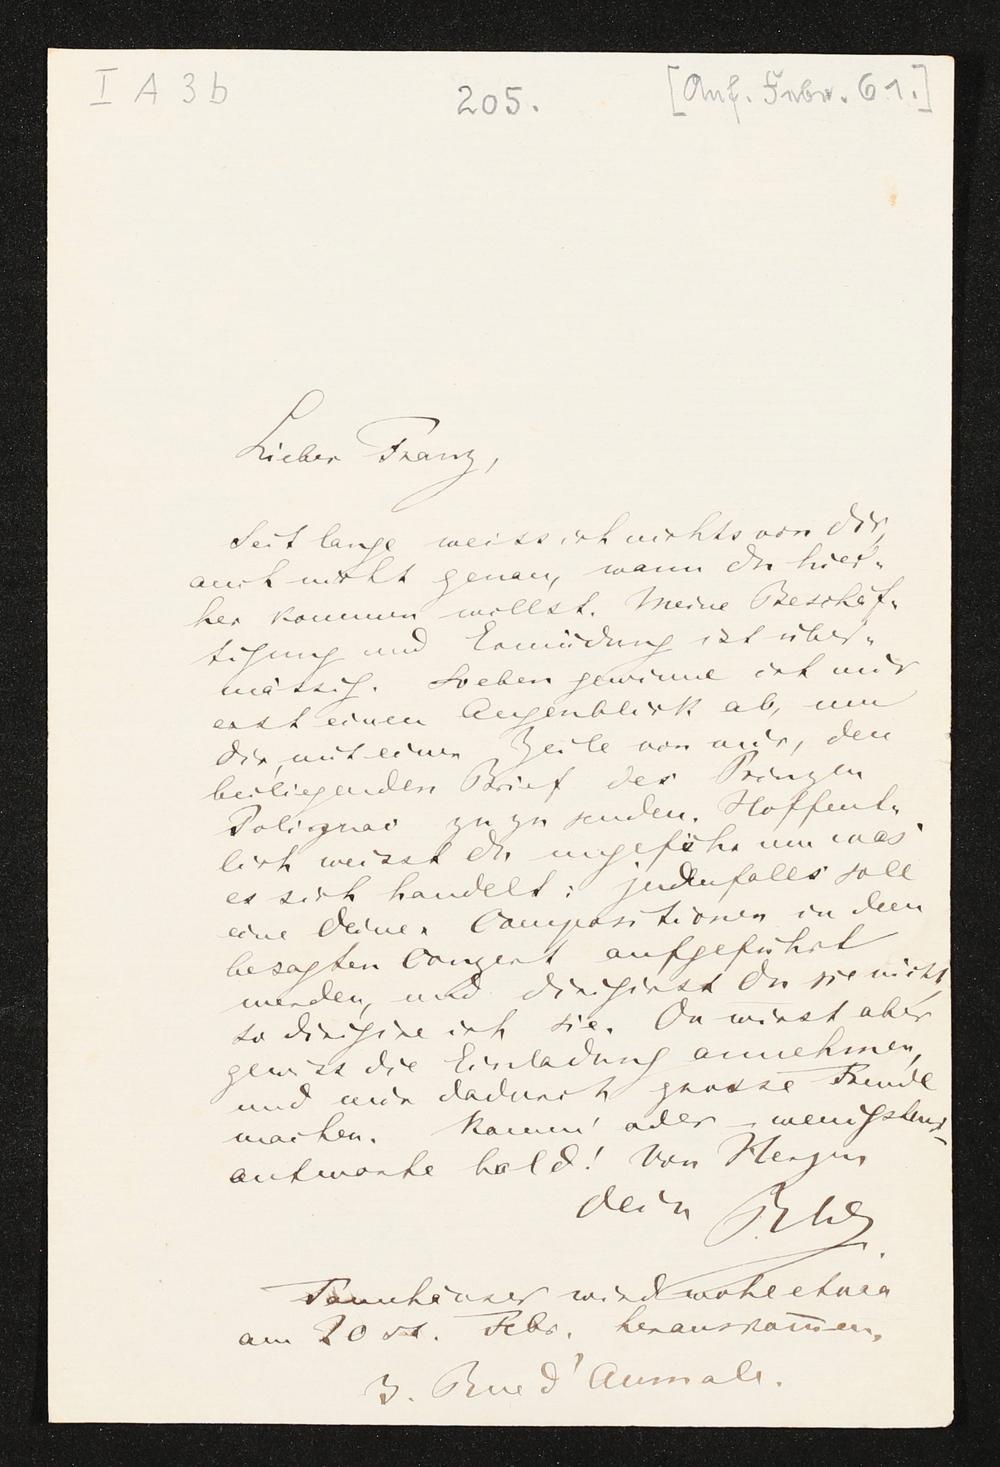 I A 3 b
205.
[Anf. Febr. 61.]
Lieber Franz,
Seit lange weiss ich nichts von Dir,
auch nicht genau, wann Du hier-
her kommen willst. Meine Beschäf-
tigung und Ermüdung ist über-
mässig. Soeben gewinne ich mir
erst einen Augenblick ab, um
Dir, mit einer Zeile von mir, den
beiliegenden Brief des Prinzen
Polignac zu zu senden. Hoffent-
lich weisst Du ungefähr um was
es sich handelt: jedenfalls soll
eine Deiner Compositionen in dem
besagten Conzert aufgeführt
werden, und dirigirst Du sie nicht,
so dirigire ich sie. Du wirst aber
gewiss die Einladung annehmen,
und mir dadurch grosse Freude
machen. Komm' oder – wenigstens –
antworte bald! Von Herzen
dein RW.
Tannhäuser wird wohl etwa
am 20 st. Febr. herauskommen.
3. Rue d'Aumale.